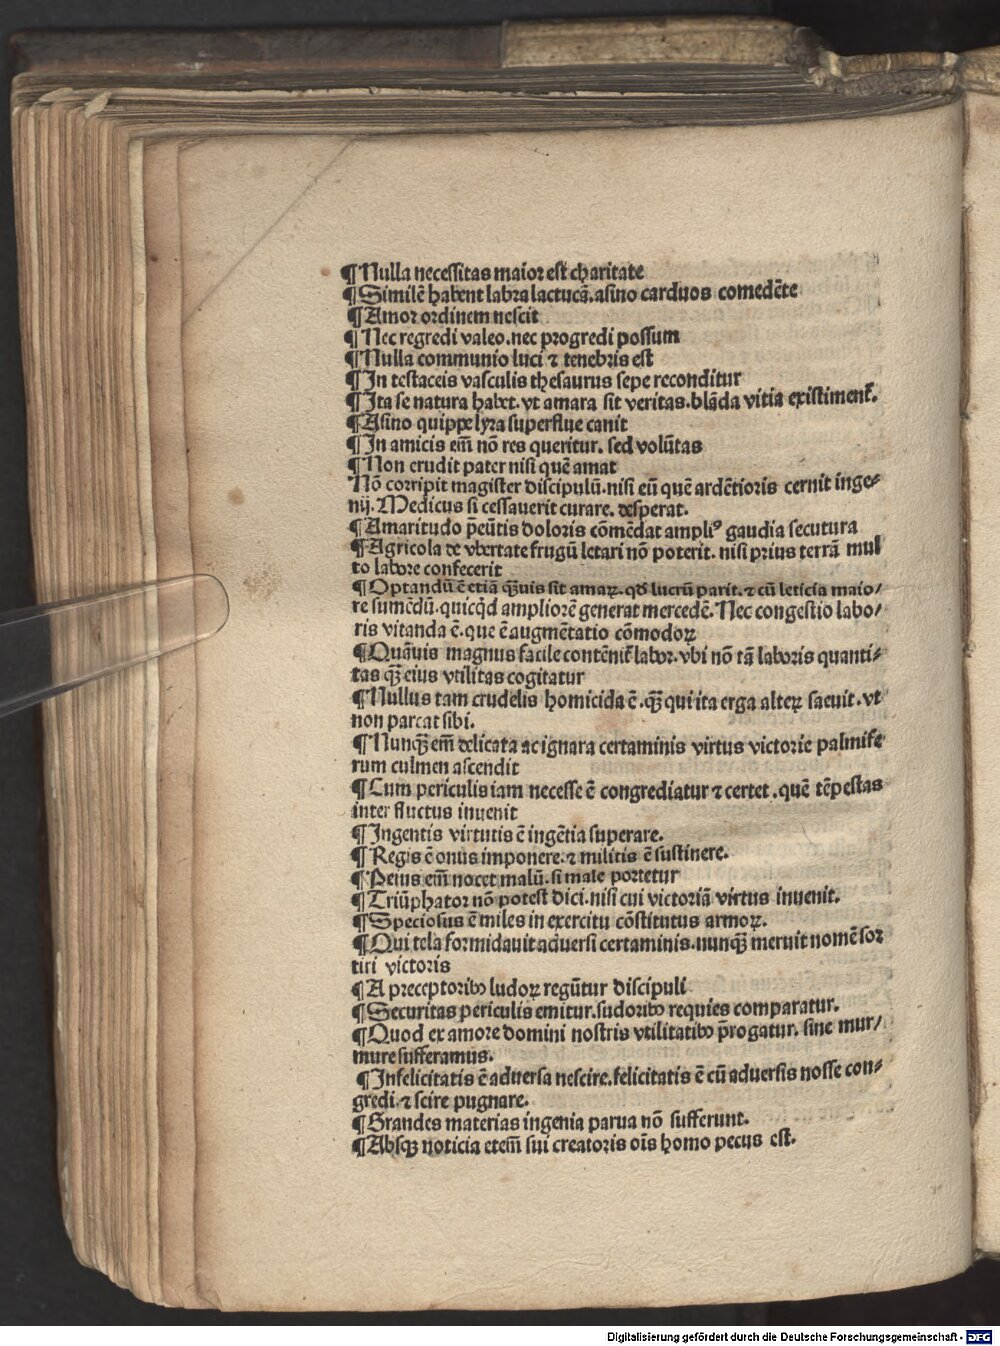 ¶Nulla necessitas maior est charitate
¶Similẽ habent labra lactucã.asino carduos comedẽte
¶Amor ordinem nescit
¶Nec regredi valeo.nec progredi possum
¶Nulla communio luci ⁊ tenebris est
¶In testaceis vasculis thesaurus sepe reconditur
¶Ita se natura habet.vt amara sit veritas.blãda vitia existiment᷑.
¶Asino quippe lyra superflue canit
¶In amicis em̃ nõ res queritur. sed volũtas
¶Non erudit pater nisi quẽ amat
Nõ corripit magister discipulũ.nisi eũ quẽ ardẽtioris cernit inge⸗
nij.Medicus si cessauerit curare. desperat.
¶Amaritudo p̃eũtis doloris cõmẽdat ampliꝰ gaudia secutura
¶Agricola de vbertate frugũ letari nõ poterit. nisi prius terrã mul
to labore confecerit
¶Optandũ ẽ etiã qͣ̃uis sit amaꝝ. qđ lucrũ parit.⁊ cũ leticia maio/
re sumẽdũ.quicq̇d ampliorẽ generat mercedẽ.Nec congestio labo/
ris vitanda ẽ.que ẽ augmẽtatio cõmodoꝝ
¶Quãuis magnus facile contẽnit᷑ labor.vbi nõ tã laboris quanti⸗
tas qͣ̃ eius vtilitas cogitatur
¶Nullus tam crudelis homicida ẽ.qͣ̃ qui ita erga alteꝝ saeuit.vt
non parcat sibi.
¶Nunqͣ̃ em̃ delicata ac ignara certaminis virtus victorie palmife
rum culmen ascendit
¶Cum periculis iam necesse ẽ congrediatur ⁊ certet .quẽ tẽpestas
inter fluctus inuenit
¶Ingentis virtutis ẽ ingẽtia superare.
¶Regis ẽ onus imponere.⁊ militis ẽ sustinere.
¶Peius em̃ nocet malũ.si male portetur
¶Triũphator nõ potest dici.nisi cui victoriã virtus inuenit.
¶Speciosus ẽ miles in exercitu cõstitutus armoꝝ.
¶Qui tela formidauit aduersi certaminis.nunqͣ̃ meruit nomẽ sor
tiri victoris
¶A preceptoribꝰ ludoꝝ regũtur discipuli
¶Securitas periculis emitur.sudoribꝰ requies comparatur.
¶Quod ex amore domini nostris vtilitatibꝰ p̃rogatur. sine mur/
mure sufferamus.
¶Infelicitatis ẽ aduersa nescire.felicitatis ẽ cũ aduersis nosse con⸗
gredi.⁊ scire pugnare.
¶Grandes materias ingenia parua nõ sufferunt.
¶Absqꝫ noticia etem̃ sui creatoris oĩs homo pecus est.
Digitalisierung gefördert durch die Deutsche Forschungsgemeinschaft - DFG